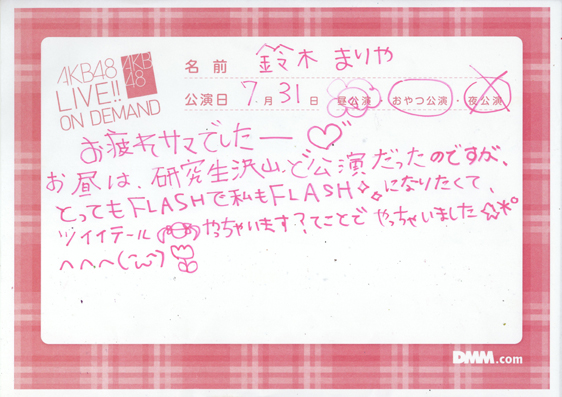 AKB48
LIVE!!
ON DEMAND
AKB
48
名前 鈴木まりや
公演日 7月31日 昼公演・おやつ公演・夜公演
お疲れサマでしたー♡
お昼は、研究生沢山、ど公演だったのですが、
とってもFLASHで私もFLASH✧になりたくて、
ツイイテール やっちゃいます?てことで やっちゃいました
へへへ(´ω`)
DMM.com